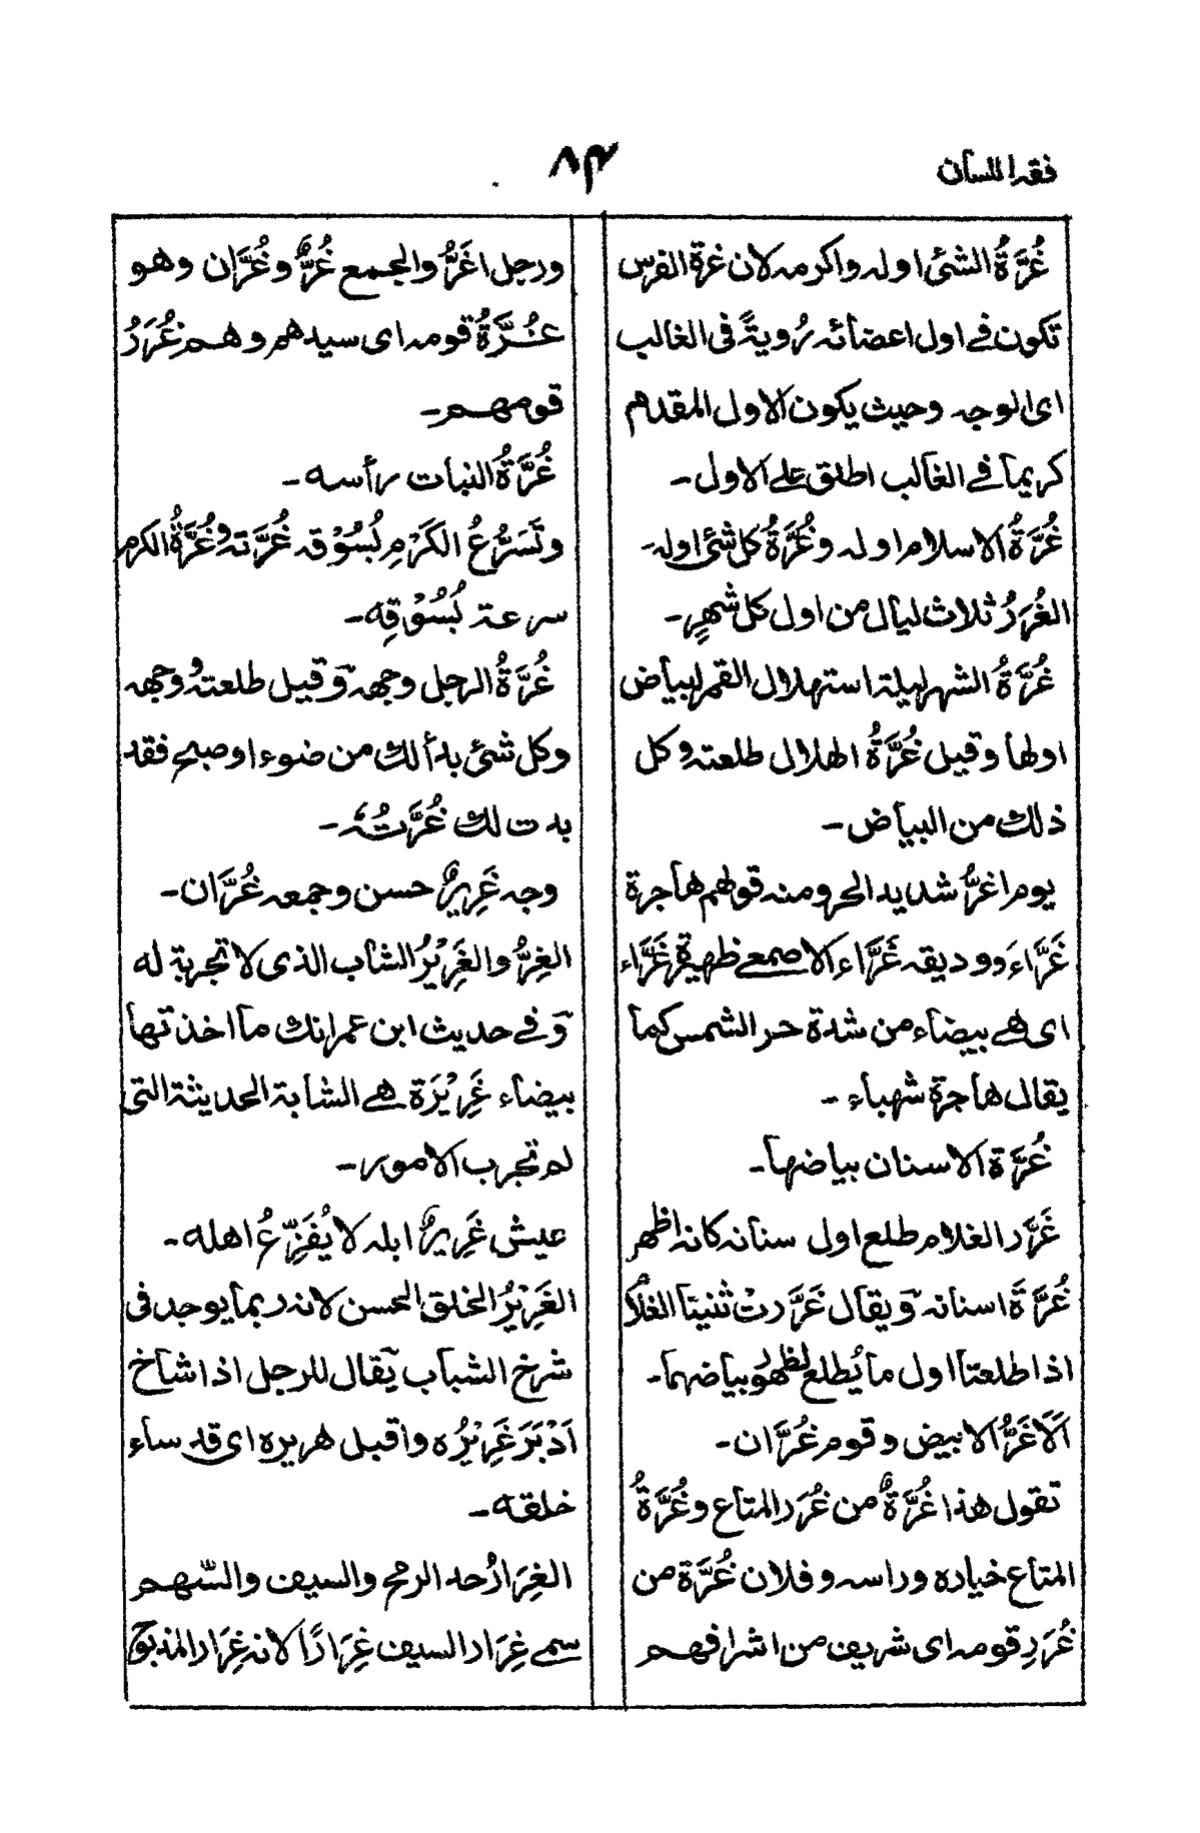 فقه اللسان
۸۴
غُرَّةُ الشئ اوله واكرمه لان غرة الفرس
تكون فے اول اعضائه رُويةً فى الغالب
اى الوجه وحيث يكون الاول المقدم
كريماً فے الغالب اطلق علے الاول ۔
غُرَّةُ الاسلام اوله وغُرَّةُ كل شئ اوله۔
الغُرَرُ ثلاث ليال من اول كل شهرٍ۔
غُرَّةُ الشهر ليلة استهلال القمر لبياض
اولها وقيل غُرَّةُ الهلال طلعته وكل
ذلك من البياض ۔
يوم اغرُّ شديد الحر ومنه قولهم هاجرة
غَرَّاءَ ووديقه غَرَّاءِ الاصمعے ظهيرة غَرَّاء
اى هے بيضاء من شدة حر الشمس كما
يقال هاجرة شهباء ۔
غُرَّة الاسنان بياضها۔
غَرَّر الغلام طلع اول سنانه كانه اظهر
غُرَّةَ اسنانه وَيقال غَرَّرتْ ثنيتا الغلام
اذا طلعتا اول ما يُطلع لظهور بياضهما۔
اَلاَغَرُّ الابيض وقوم غُرَّان۔
تقول هذا غُرَّةٌ من غُرَر المتاع وغُرَّةُ
المتاع خياره وراسه وفلان غُرَّة من
غُرَرِ قومه اى شريف من اشرافهم
ورجل اغَرُّ والجمع غُرٌّ وغُرَّان وهو
غُرَّةُ قومه اى سيدهم وهم غُرَرُ
قومهم۔
غُرَّةُ النبات رأسه ۔
وتَسَرُّعُ الكَرْمِ بُسُوْقه غُرَّته وغُرَّةُ الكرم
سرعة بُسُوْقِه۔
غُرَّةُ الرجل وجهه وَقيل طلعتهُ وجهه
وكل شئ بدأ لك من ضوء اوصبح فقد
بدت لك غُرَّتُهُ۔
وجه غَرِيرٌ حسن وجمعه غُرَّان۔
الغِرُّ والغَرِيْرُ الشاب الذى لا تجربة له
وَفے حديث ابن عمر انك ما اخذتها
بيضاء غَرِيْرَة هے الشابة الحديثة التى
لم تجرب الامور۔
عيش غَرِيرٌ ابله لا يُفَزِّعُ اهله ۔
الغَرِيْرُ الخلق الحسن لانه ربما يوجد فى
شرخ الشباب يَقال للرجل اذا شاخ
اَدْبَرَ غَرِيْرُه واقبل هريره اى قد ساء
خلقه ۔
الغِرَارُ حد الرمح والسيف والسّهم
سمے غِرَار السيف غِرَارًا لانه غِرَار المذبوح